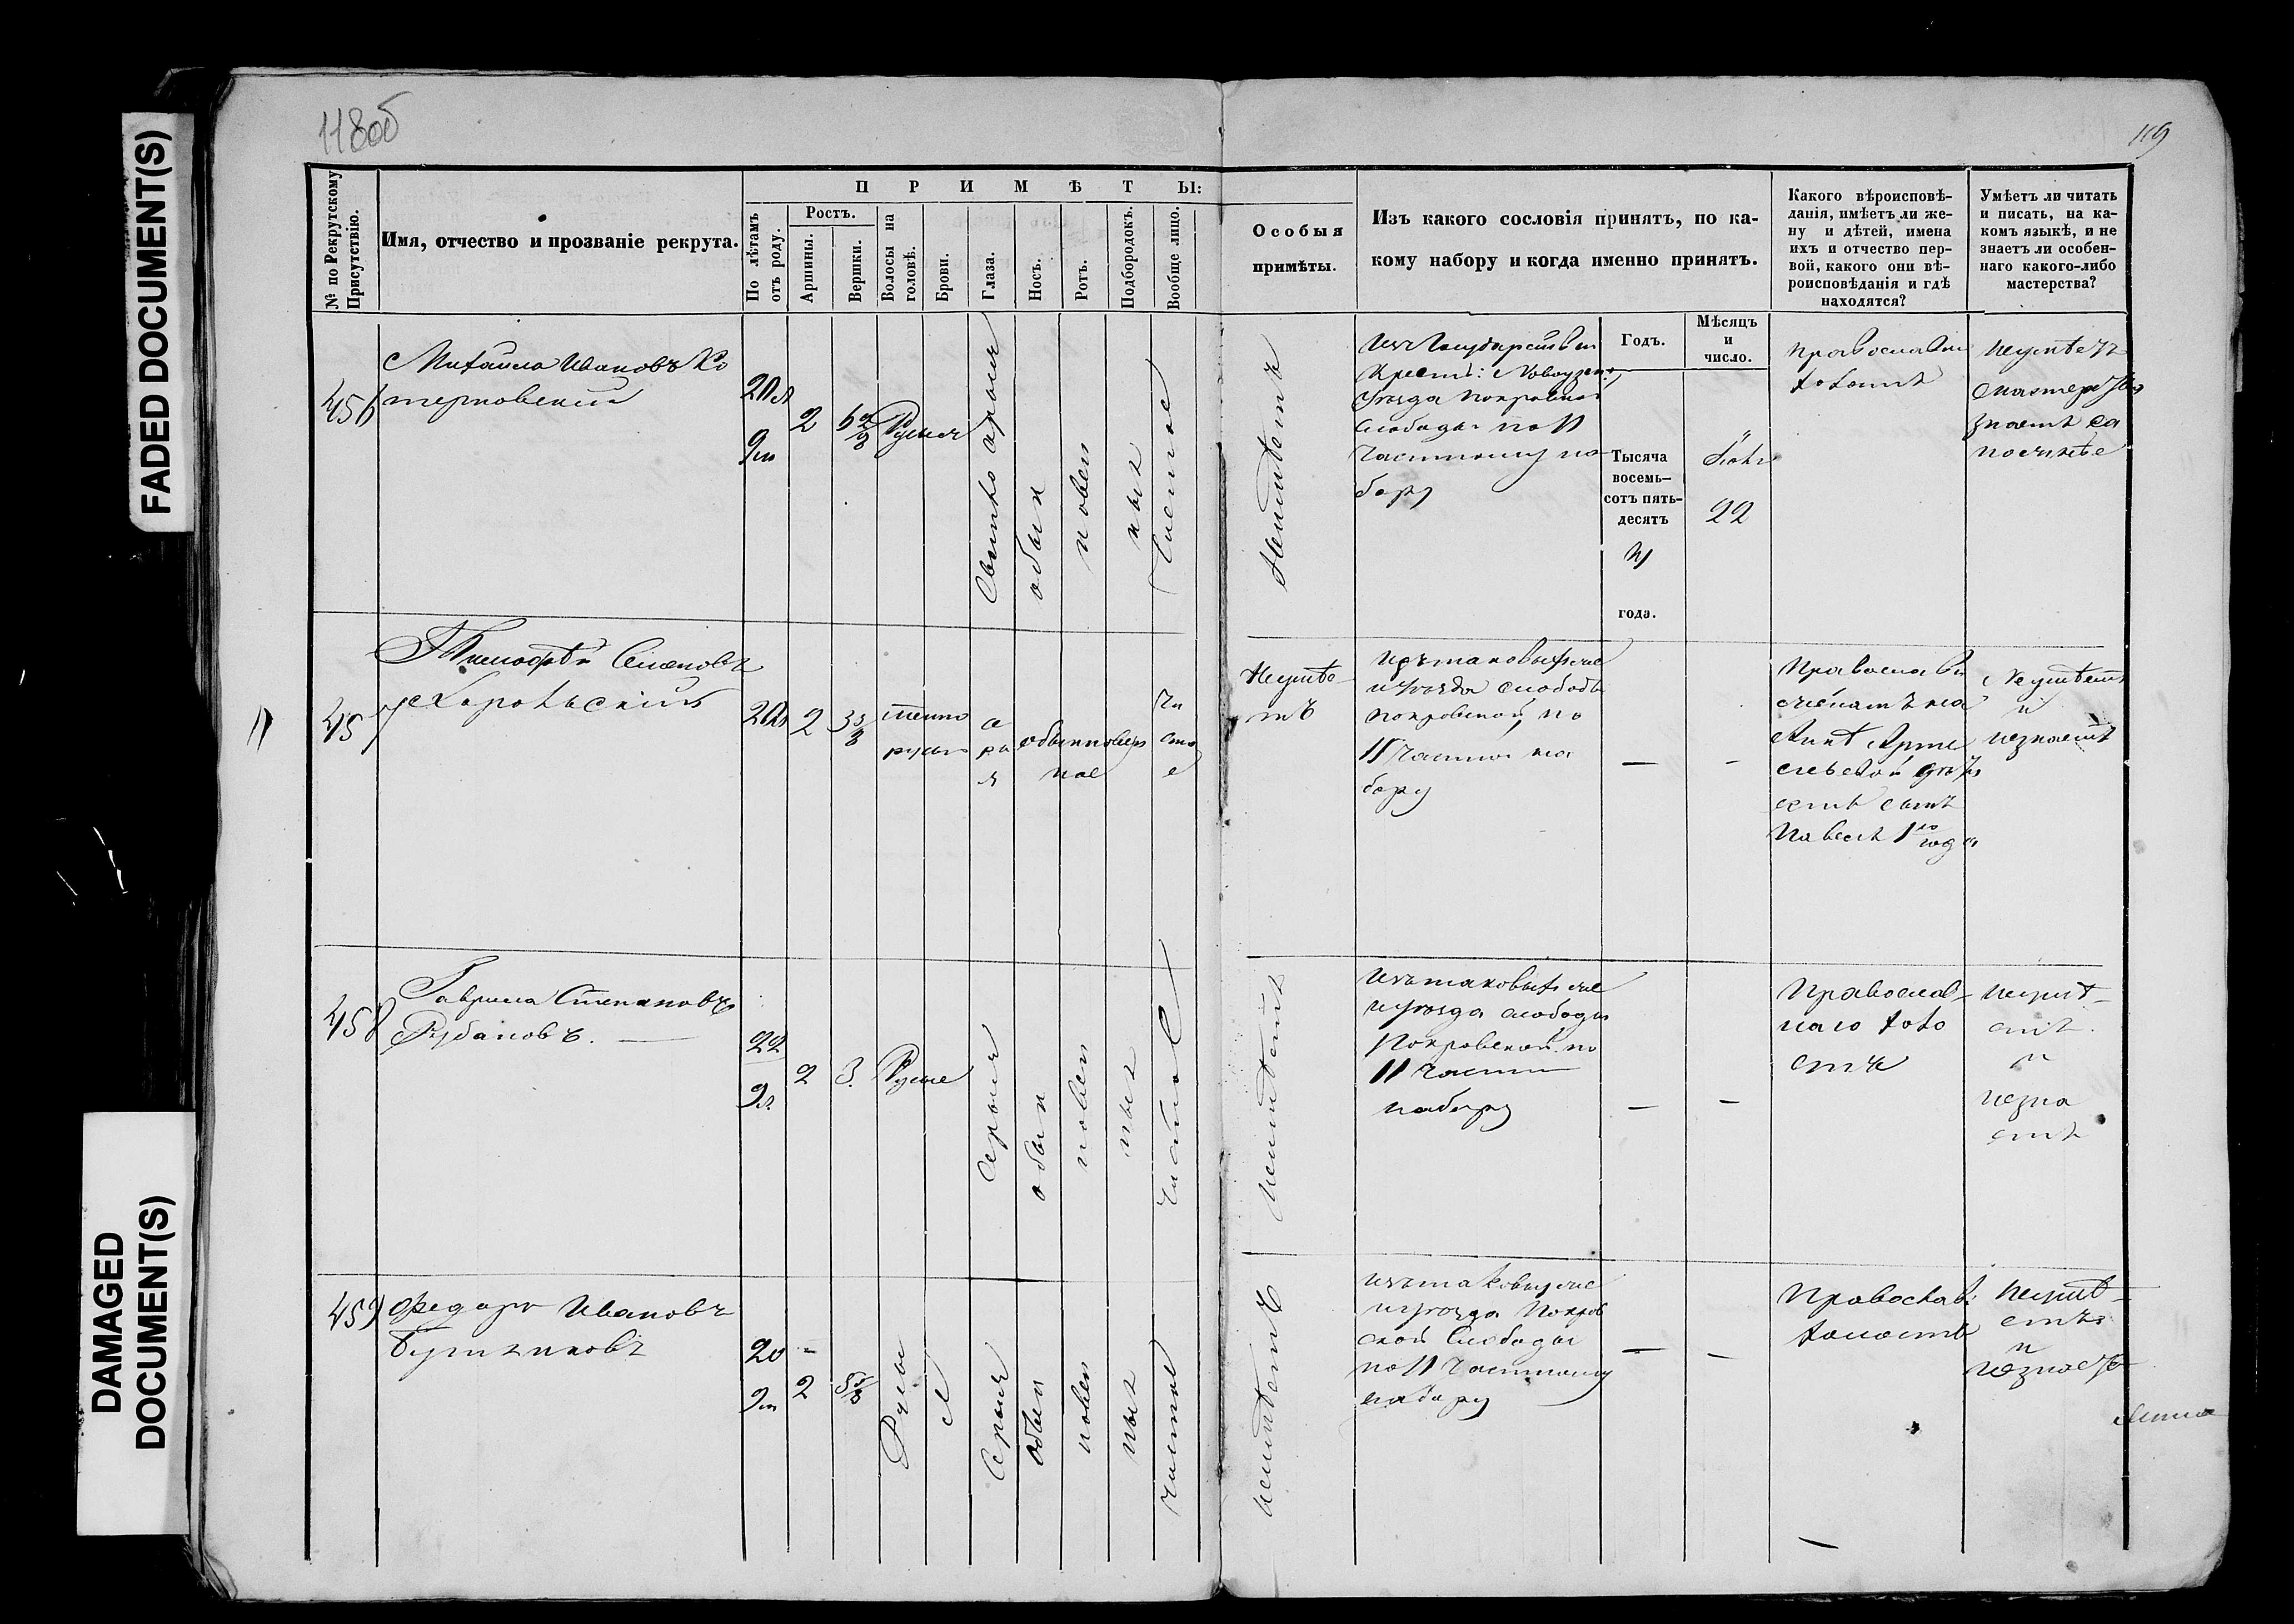 FADED DOCUMENT(S)
DAMAGED
DOCUMENT(S)
118об
119
№ по Рекрутскому
Присутствію.
Имя, отчество и прозваніе рекрута.
ПРИМѢТЫ:
По лѣтамъ
отъ роду.
Ростъ.
Аршины.
Вершки.
Волосы на
головѣ.
Брови.
Глаза.
Носъ.
Ротъ.
Подбородокъ.
Вообще лицо.
Особыя
примѣты.
Изъ какого сословія принятъ, по ка-
кому набору и когда именно принятъ.
Какого вѣроисповѣ-
данія, имѣетъ ли же-
ну и дѣтей, имена
ихъ и отчество пер-
вой, какого они вѣ-
роисповѣданія и гдѣ
находятся?
Умѣетъ ли читать
и писать, на ка-
комъ языкѣ, и не
знаетъ ли особен-
наго какого-либо
мастерства?
Годъ.
Мѣсяцъ
и
число.
456
Михайла Ивановъ Ко
терновскій
20 л
9 м
2
6 2/8
Русыя
Свѣтло сѣрыя
обыкновенныя
Чистое
Неимѣетъ
Изъ Государствен
Крест: Новоузен:
уѣзда Покровской
слободы по 11
Частному на-
бору
Тысяча
восемь-
сотъ пять-
десятъ
года.
22
Православн
холостъ
Неумѣетъ
мастерства
знаетъ са
пожнѣе
457
Тимофѣй Семеновъ
Харольскій
20
2
3 3/8
темно
русы
сѣрыя
обыкновен
ное
чистое
Неимѣе
тъ
Изъ таковыхъ же
и уѣзда слободы
Покровской по
11 Частно на
бору
—
—
Православн
женатъ на
Аннѣ
сынъ
1 го года
Неумѣетъ
и
незнаетъ
458
Гаврила Степановъ
Рубановъ. —
22
9 м
2
3.
Русые
Сѣрыя
обыкновенныя
Чистое
Неимѣетъ
Изъ таковыхъ же
и уѣзда слободы
Покровской по
11 Частн
набору
—
—
Православ-
наго холо
стъ
Неумѣ-
етъ.
и
незна
етъ
459
Федоръ Ивановъ
20
9 м
2
5 1/8
Русые
Сѣрыя
Обыкновенныя
Чистое
Неимѣетъ
Изъ таковыхъ же
и уѣзда Покров
ской Слободы
по 11 Частному
набору
—
—
Православ:
холостъ
Неумѣ-
етъ
и
незнаетъ